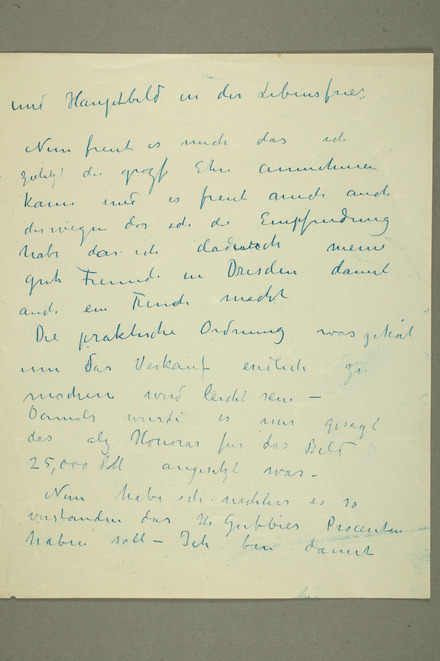 und Hauptbild in der Lebensfries
Nun freut es mich das ich
zuletzt die große Ehre annehmen
kann und es freut mich auch
deswegen das ich die Empfindung
habe das ich dadurch meine
gute Freunde in Dresden damit
auch ein Freude macht
Die praktische Ordnung was gehört
um das Verkauf endlich zu
machen wird leicht sein –
Damals wurde es mir gesagt
das als Honorar für das Bild
25,000 M angesetzt war –
Nun habe ich nachher es so
verstanden das H Gubbier Procenten
haben soll – Ich bin damit